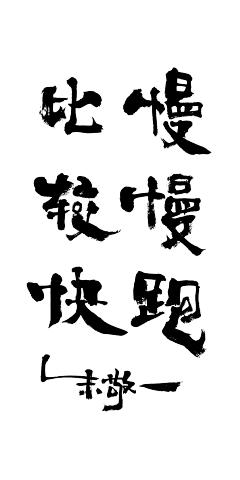 慢慢跑
比較快
朱敬一